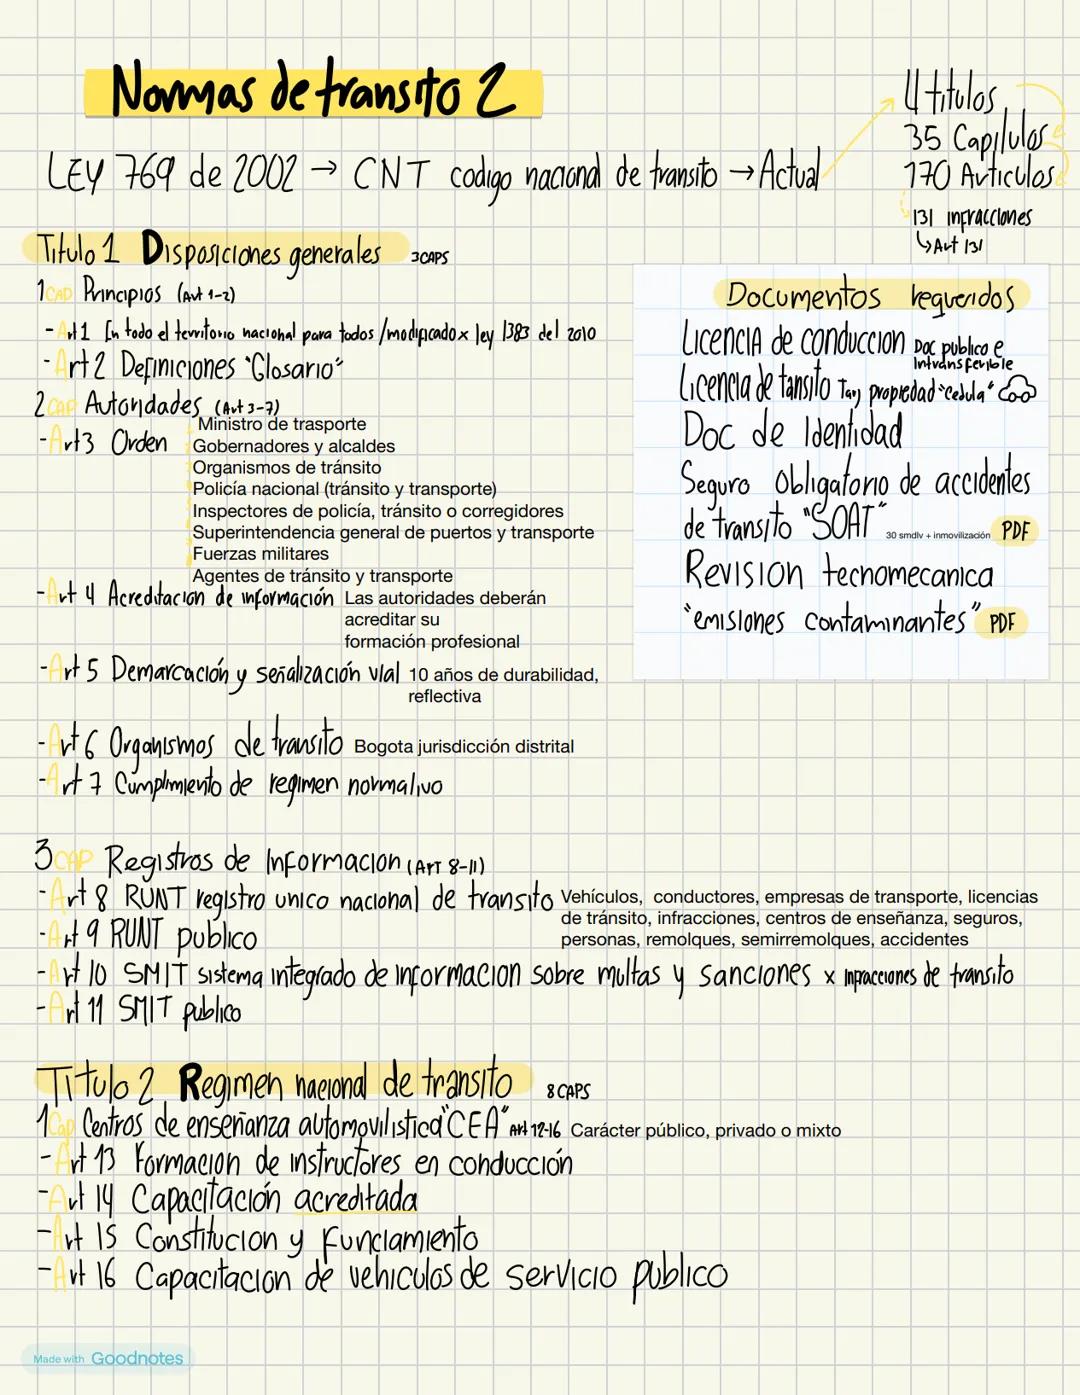 Normas de transito 2
4 titulos
35 Capitulos
170 Articulos
131 infracciones
↳Art 131
LEY 769 de 2002 → CNT codigo nacional de transito → Actual
Titulo 1 Disposiciones generales 3CAPS
1 CAP Principios (Art 1-2)
- Art 1 En todo el territorio nacional para todos /modificado x ley 1383 del 2010
- Art 2 Definiciones "Glosario"
2 CAP Autoridades (Art 3-7)
- Art 3 Orden
Ministro de trasporte
Gobernadores y alcaldes
Organismos de tránsito
Policía nacional (tránsito y transporte)
Inspectores de policía, tránsito o corregidores
Superintendencia general de puertos y transporte
Fuerzas militares
Agentes de tránsito y transporte
- Art 4 Acreditacion de información Las autoridades deberán
acreditar su
formación profesional
- Art 5 Demarcación y señalización vial 10 años de durabilidad,
reflectiva
- Art 6 Organismos de transito Bogota jurisdicción distrital
- Art 7 Cumplimiento de regimen normativo
Documentos requeridos
Licencia de conduccion Doc publico e
intransferible
Licencia de tansito Tarj propiedad "cedula"
Doc de Identidad
Seguro obligatorio de accidentes
de transito "SOAT" 30 smdlv + inmovilización PDF
Revision tecnomecanica
"emisiones contaminantes" PDF
3 CAP Registros de Informacion (Art 8-11)
- Art 8 RUNT registro unico nacional de transito Vehículos, conductores, empresas de transporte, licencias
de tránsito, infracciones, centros de enseñanza, seguros,
personas, remolques, semirremolques, accidentes
- Art 9 RUNT publico
- Art 10 SMIT sistema integrado de informacion sobre multas y sanciones x infracciones de transito
- Art 11 SMIT publico
Titulo 2 Regimen nacional de transito 8 CAPS
1 Cap Centros de enseñanza automovilistica "CEA" Art 12-16 Carácter público, privado o mixto
- Art 13 Formacion de instructores en conducción
- Art 14 Capacitación acreditada
- Art 15 Constitucion y funciamiento
- Art 16 Capacitacion de vehiculos de servicio publico
Made with Goodnotes